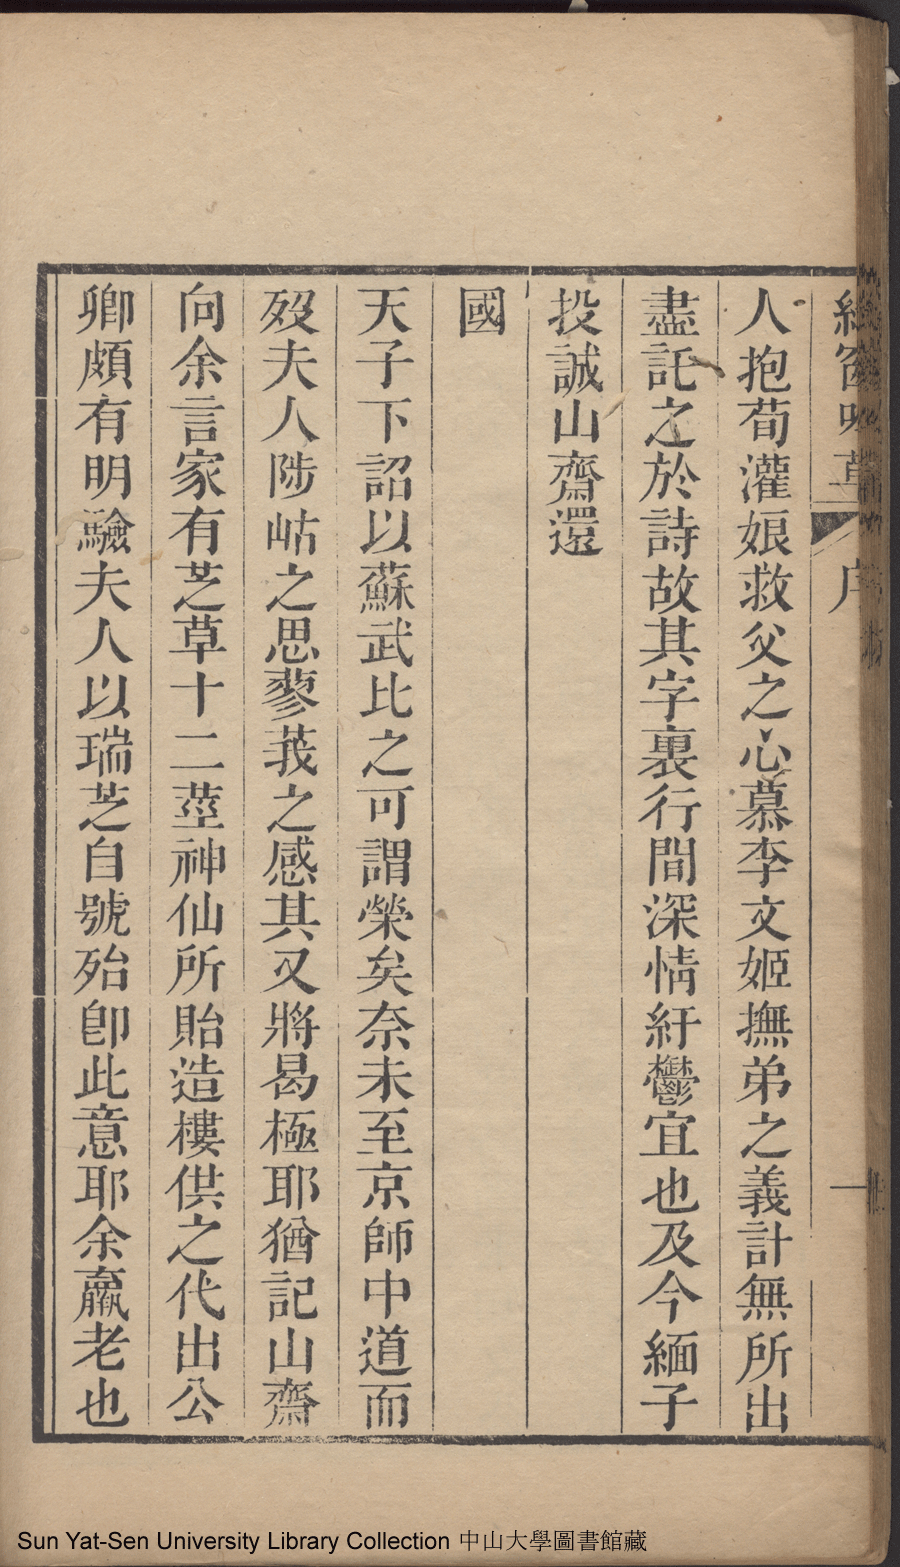 序
一
人抱荀灌娘救父之心慕李文姬撫弟之義計無所出
盡託之於詩故其字裏行間深情紆鬱宜也及今緬子
投誠山齋還
國
天子下詔以蘇武比之可謂榮矣奈未至京師中道而
歿夫人陟岵之思蓼莪之感其又將曷極耶猶記山齋
向余言家有芝草十二莖神仙所貽造樓供之代出公
卿頗有明驗夫人以瑞芝自號殆卽此意耶余羸老也
Sun Yat-Sen University Library Collection 中山大學圖書館藏